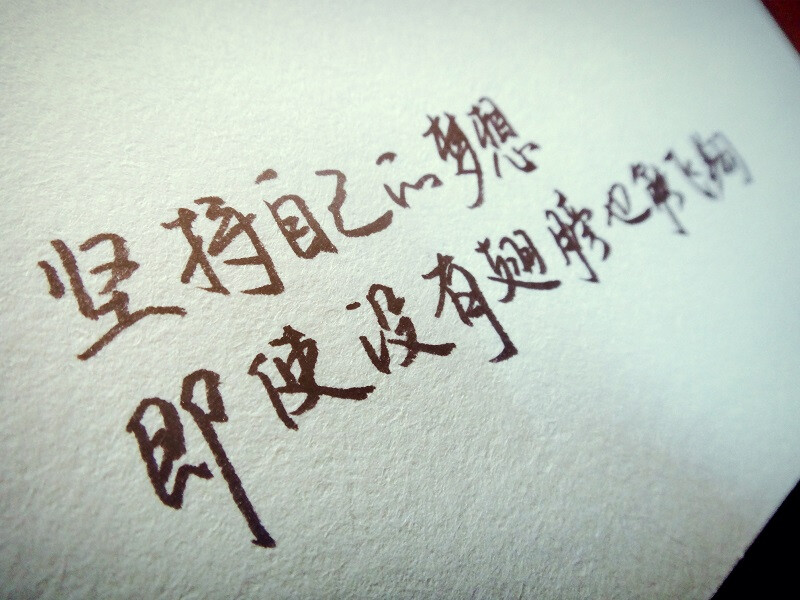 坚持自己的梦想
即使没有翅膀也能飞翔